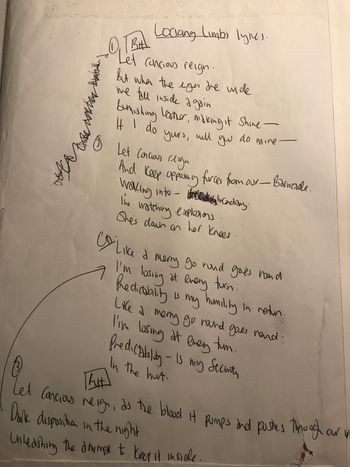 Locking Limbs lyrics.
① Riff
Let concious reign.
But when the eyes are wide
we fall inside again
burnishing leather, making it shine —
If I do yours, will you do mine —
②
Let concious reign
And keep opposing forces from our — Barricade.
Walking into —
I'm watching explosions.
She's down on her knees.
Like a merry go round goes round
I'm losing at every turn.
Predictability is my humility in return.
Like a merry go round goes round.
I'm losing at every turn.
Predictability - is my security
In the hurt.
Riff
③
Let concious reign, as the blood it pumps and pushes through our
Dark disposition in the night
Unleashing the animal to keep it inside.